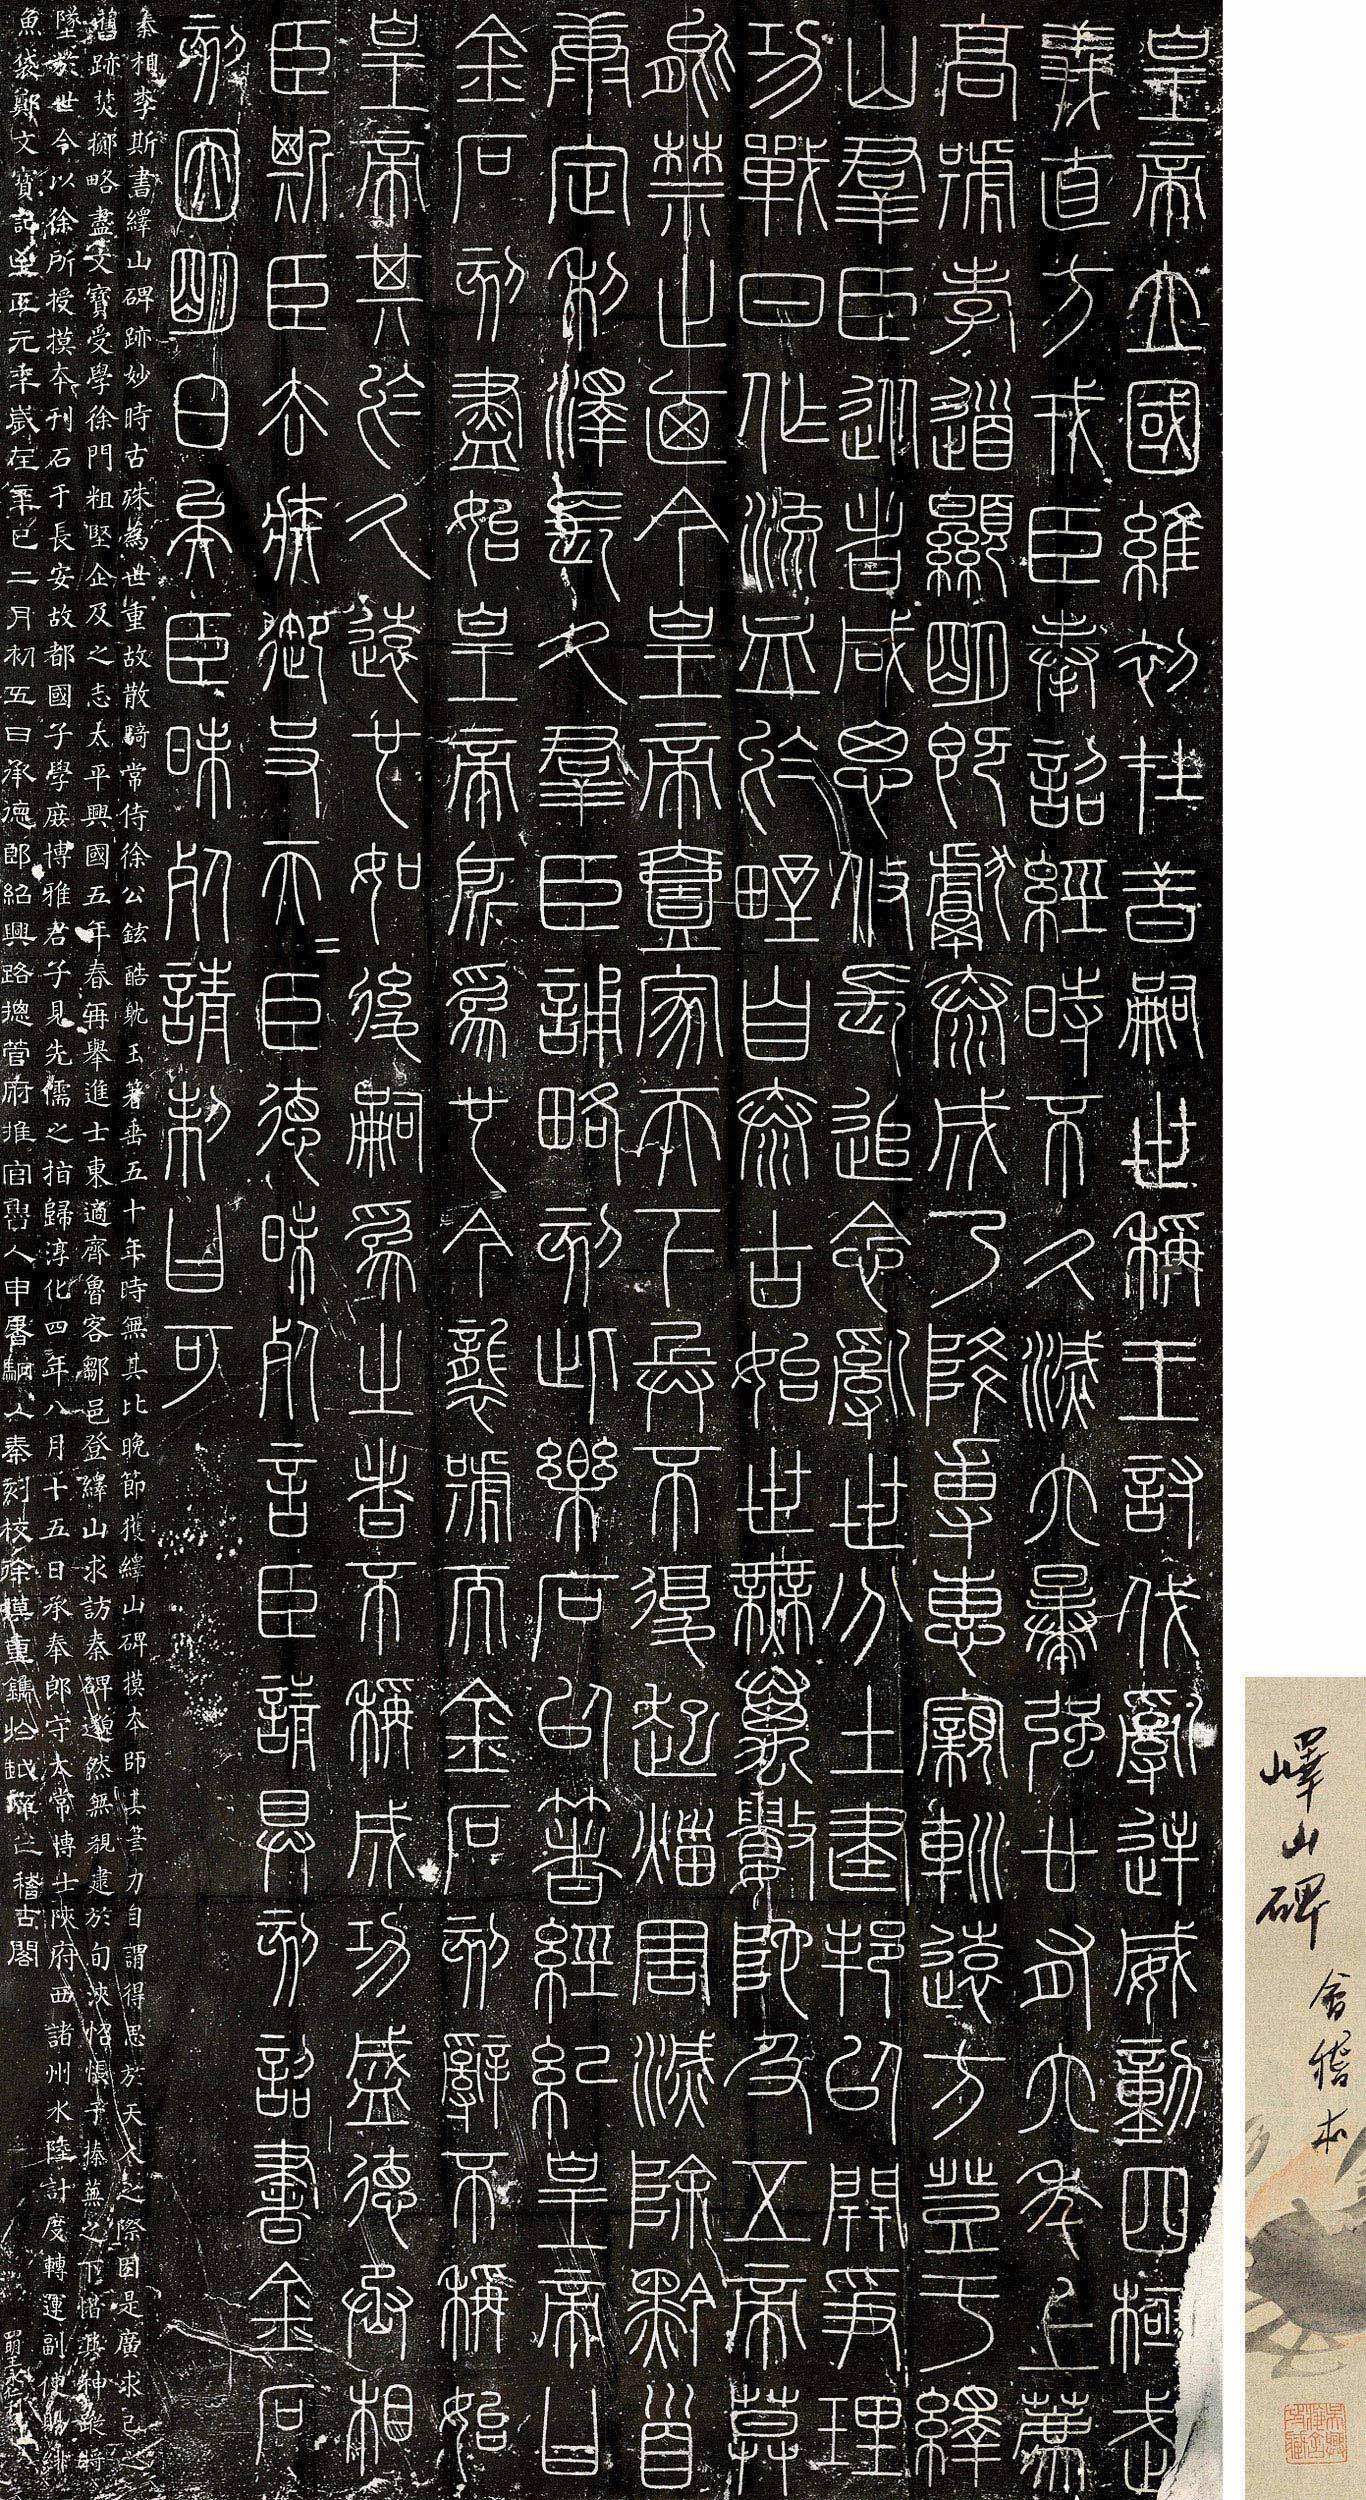 皇帝立國維初在昔嗣世稱王討伐亂逆威動四極武
義直方戎臣奉詔經時不久滅六暴強廿有六年上薦
高號孝道顯明既獻泰成乃降專惠親巡遠方登于繹
山羣臣從者咸思攸長追念亂世分土建邦以開爭理
功戰日作流血於野自泰古始世無萬數陀及五帝莫
能禁止廼今皇帝壹家天下兵不復起災害滅除黔首
康定利澤長久羣臣誦略刻此樂石以著經紀皇帝曰
金石刻盡始皇帝所為也今襲號而金石刻辭不稱始
皇帝其於久遠也如後嗣為之者不稱成功盛德丞相
臣斯臣去疾御史夫=臣德昧死言臣請具刻詔書金石
刻因明白矣臣昧死請制曰可
秦相李斯書繹山碑跡妙時古殊為世重故散騎常侍徐公鉉酷躭玉箸垂五十年時無其比晚節獲繹山碑摸本師其筆力自謂得思於天人之際因是廣求己之
舊跡焚擲略盡文寶受學徐門粗堅企及之志太平興國五年春再舉進士東適齊魯客鄒邑登繹山求訪秦碑邈然無覩逮於旬浹怊悵于榛蕪之下惜其神蹤將
墜於世今以徐所授摸本刊石于長安故都國子學庶博雅君子見先儒之指歸淳化四年八月十五日承奉郎守太常博士陝府西諸州水陸計度轉運副使賜緋
魚袋鄭文寶記至正元年歲在辛巳二月初五日承德郎紹興路總管府推官曹人申屠駉以秦刻校徐摸重鐫于越庠之稽古閣
嶧山碑
會稽本